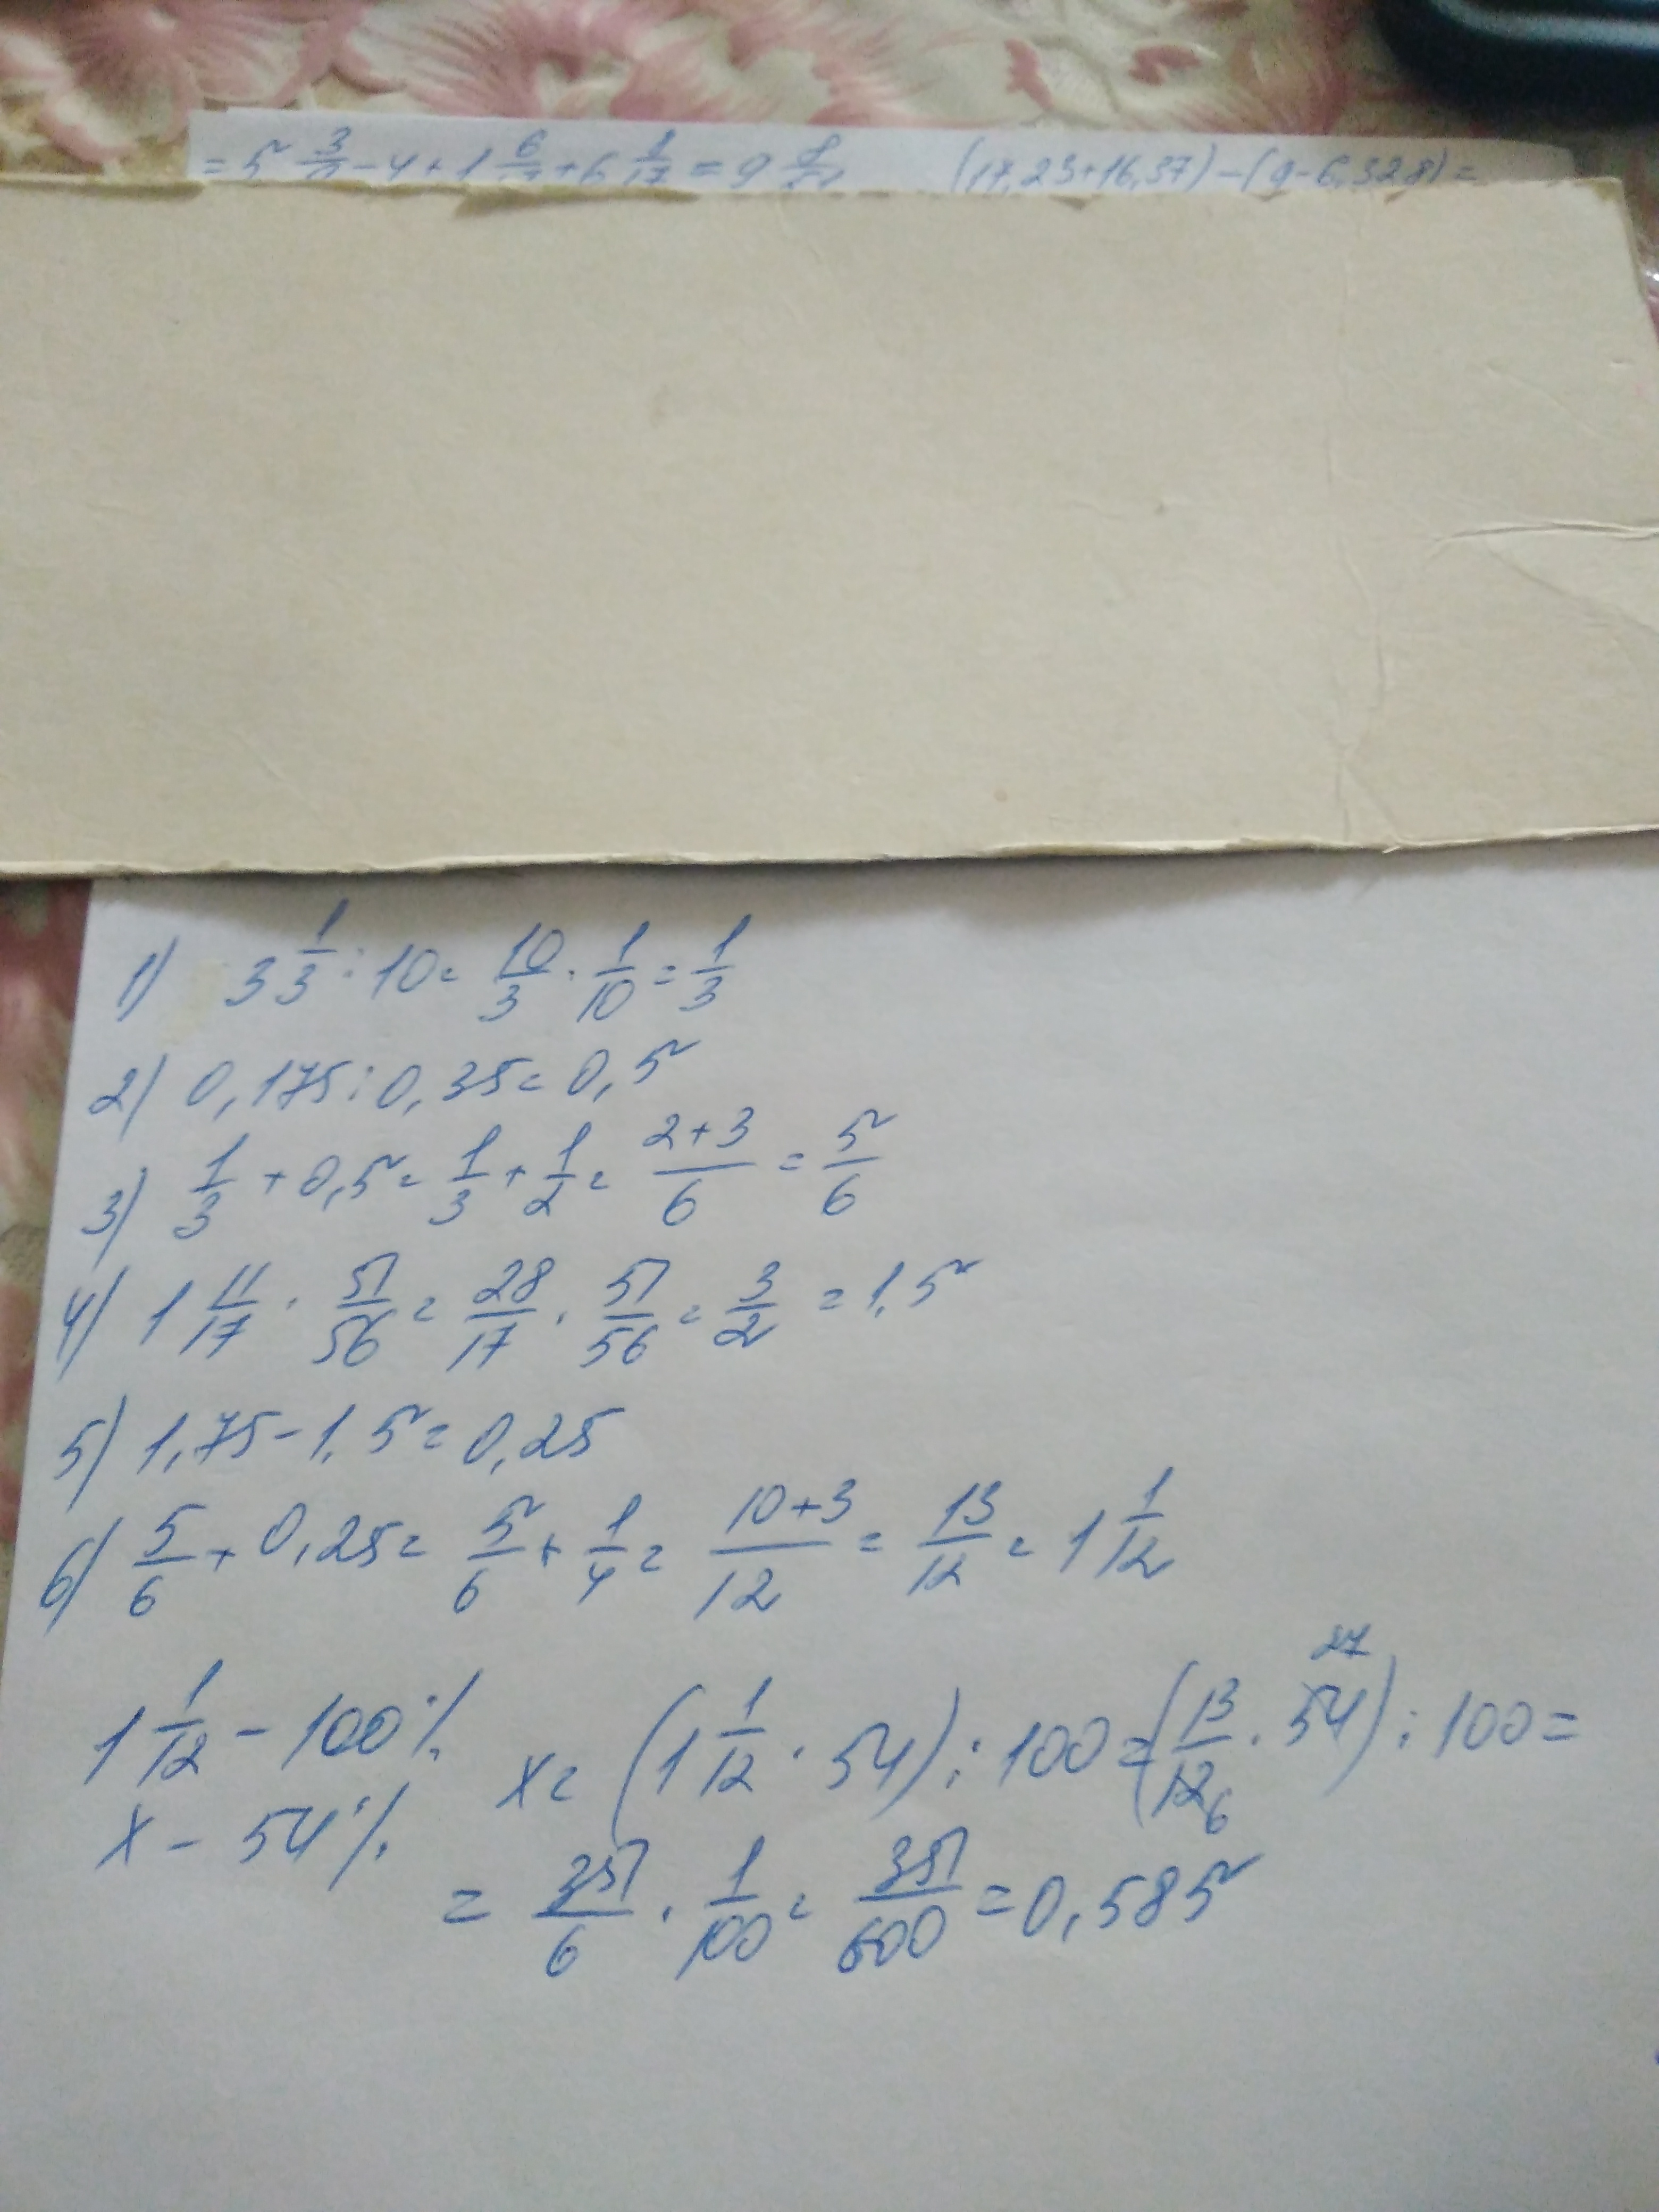 = 5 3/17 - 4 + 1 6/17 + 6 (17,23+16,37)-(9-6,328)=
1) 3 1/3 : 10 = 10/3 · 1/10 = 1/3
2) 0,175:0,35=0,5
3) 1/3 + 0,5 = 1/3 + 1/2 = (2+3)/6 = 5/6
4) 1 11/17 · 51/56 = 28/17 · 51/56 = 3/2 = 1,5
5) 1,75-1,5=0,25
6) 5/6 + 0,25 = 5/6 + 1/4 = (10+3)/12 = 13/12 = 1 1/12
27
1 1/12 - 100% x = (1 1/12 · 54) : 100 = (13/12 · 54) : 100 =
6
x - 54%
= 351/6 · 1/100 = 351/600 = 0,585